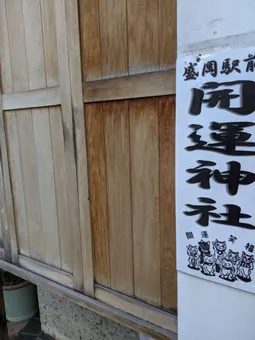 盛岡駅前
開運神社
開運笑福